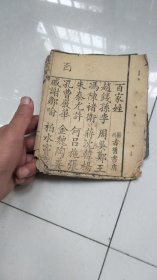 百家姓
趙錢孫李 周吳鄭王
馮陳褚衛 蔣沈韓楊
朱秦尤許 何呂施張
孔曹嚴華 金魏陶姜
戚謝鄒喻 柏水竇